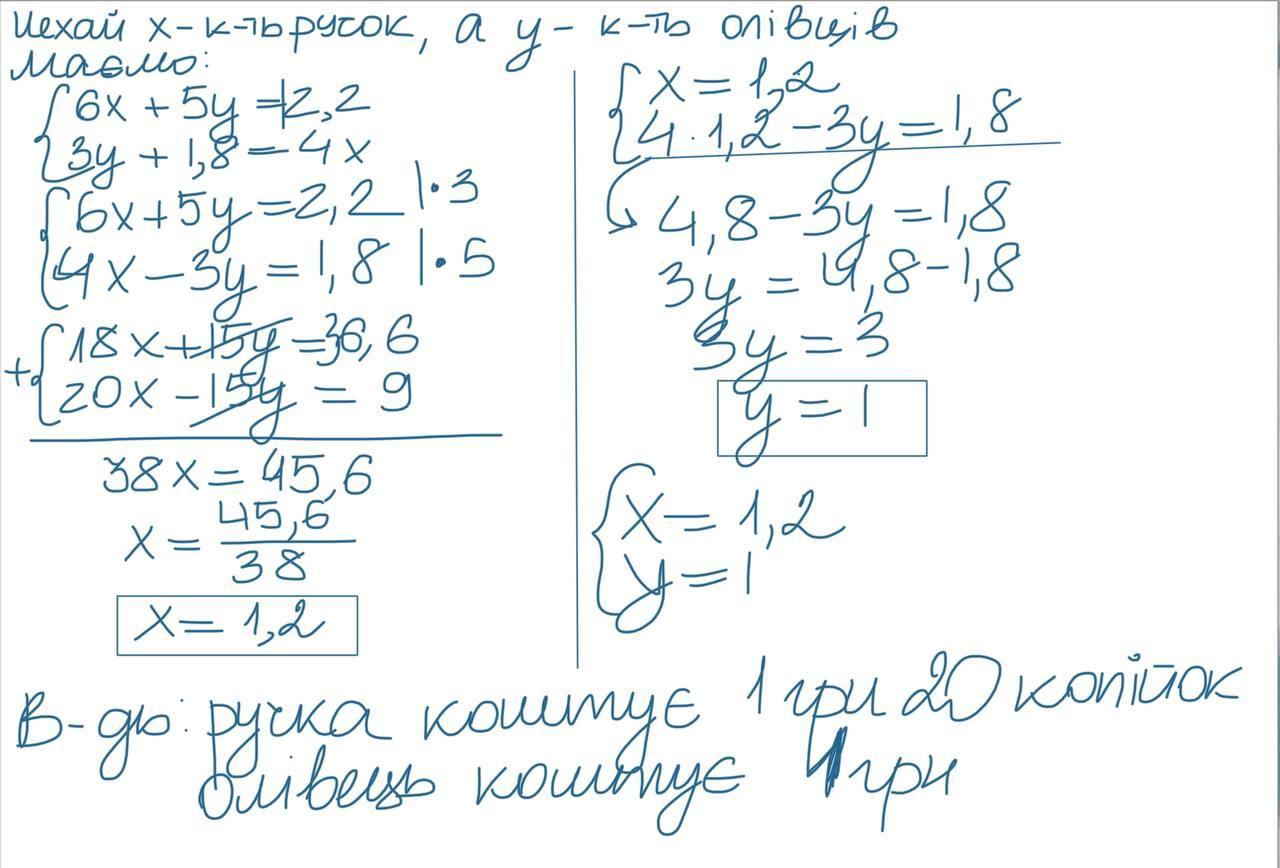 Нехай x - к-ть ручок, а y - к-ть олівців
Маємо:
6x + 5y = 12,2
3y + 1,8 = 4x
6x + 5y = 12,2 | · 3
4x - 3y = 1,8 | · 5
+ 18x + 15y = 36,6
20x - 15y = 9
38x = 45,6
x = 45,6
38
x = 1,2
x = 1,2
4 · 1,2 - 3y = 1,8
4,8 - 3y = 1,8
3y = 4,8 - 1,8
3y = 3
y = 1
x = 1,2
y = 1
В-дь: ручка коштує 1 грн 20 копійок
Олівець коштує 1 грн